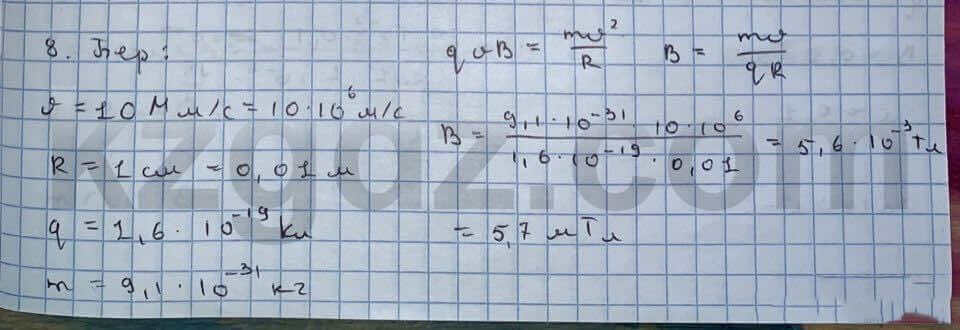 8. Бер:
v = 10 Мм/с = 10·10⁶ м/с
R = 1 см = 0,01 м
q = 1,6 · 10⁻¹⁹ Кл
m = 9,1 · 10⁻³¹ кг
qvB = mv²/R B = mv/qR
B = 9,1·10⁻³¹·10·10⁶/1,6·10⁻¹⁹·0,01 = 5,6·10⁻³ Тл
= 5,7 мТл
kzgdz.com